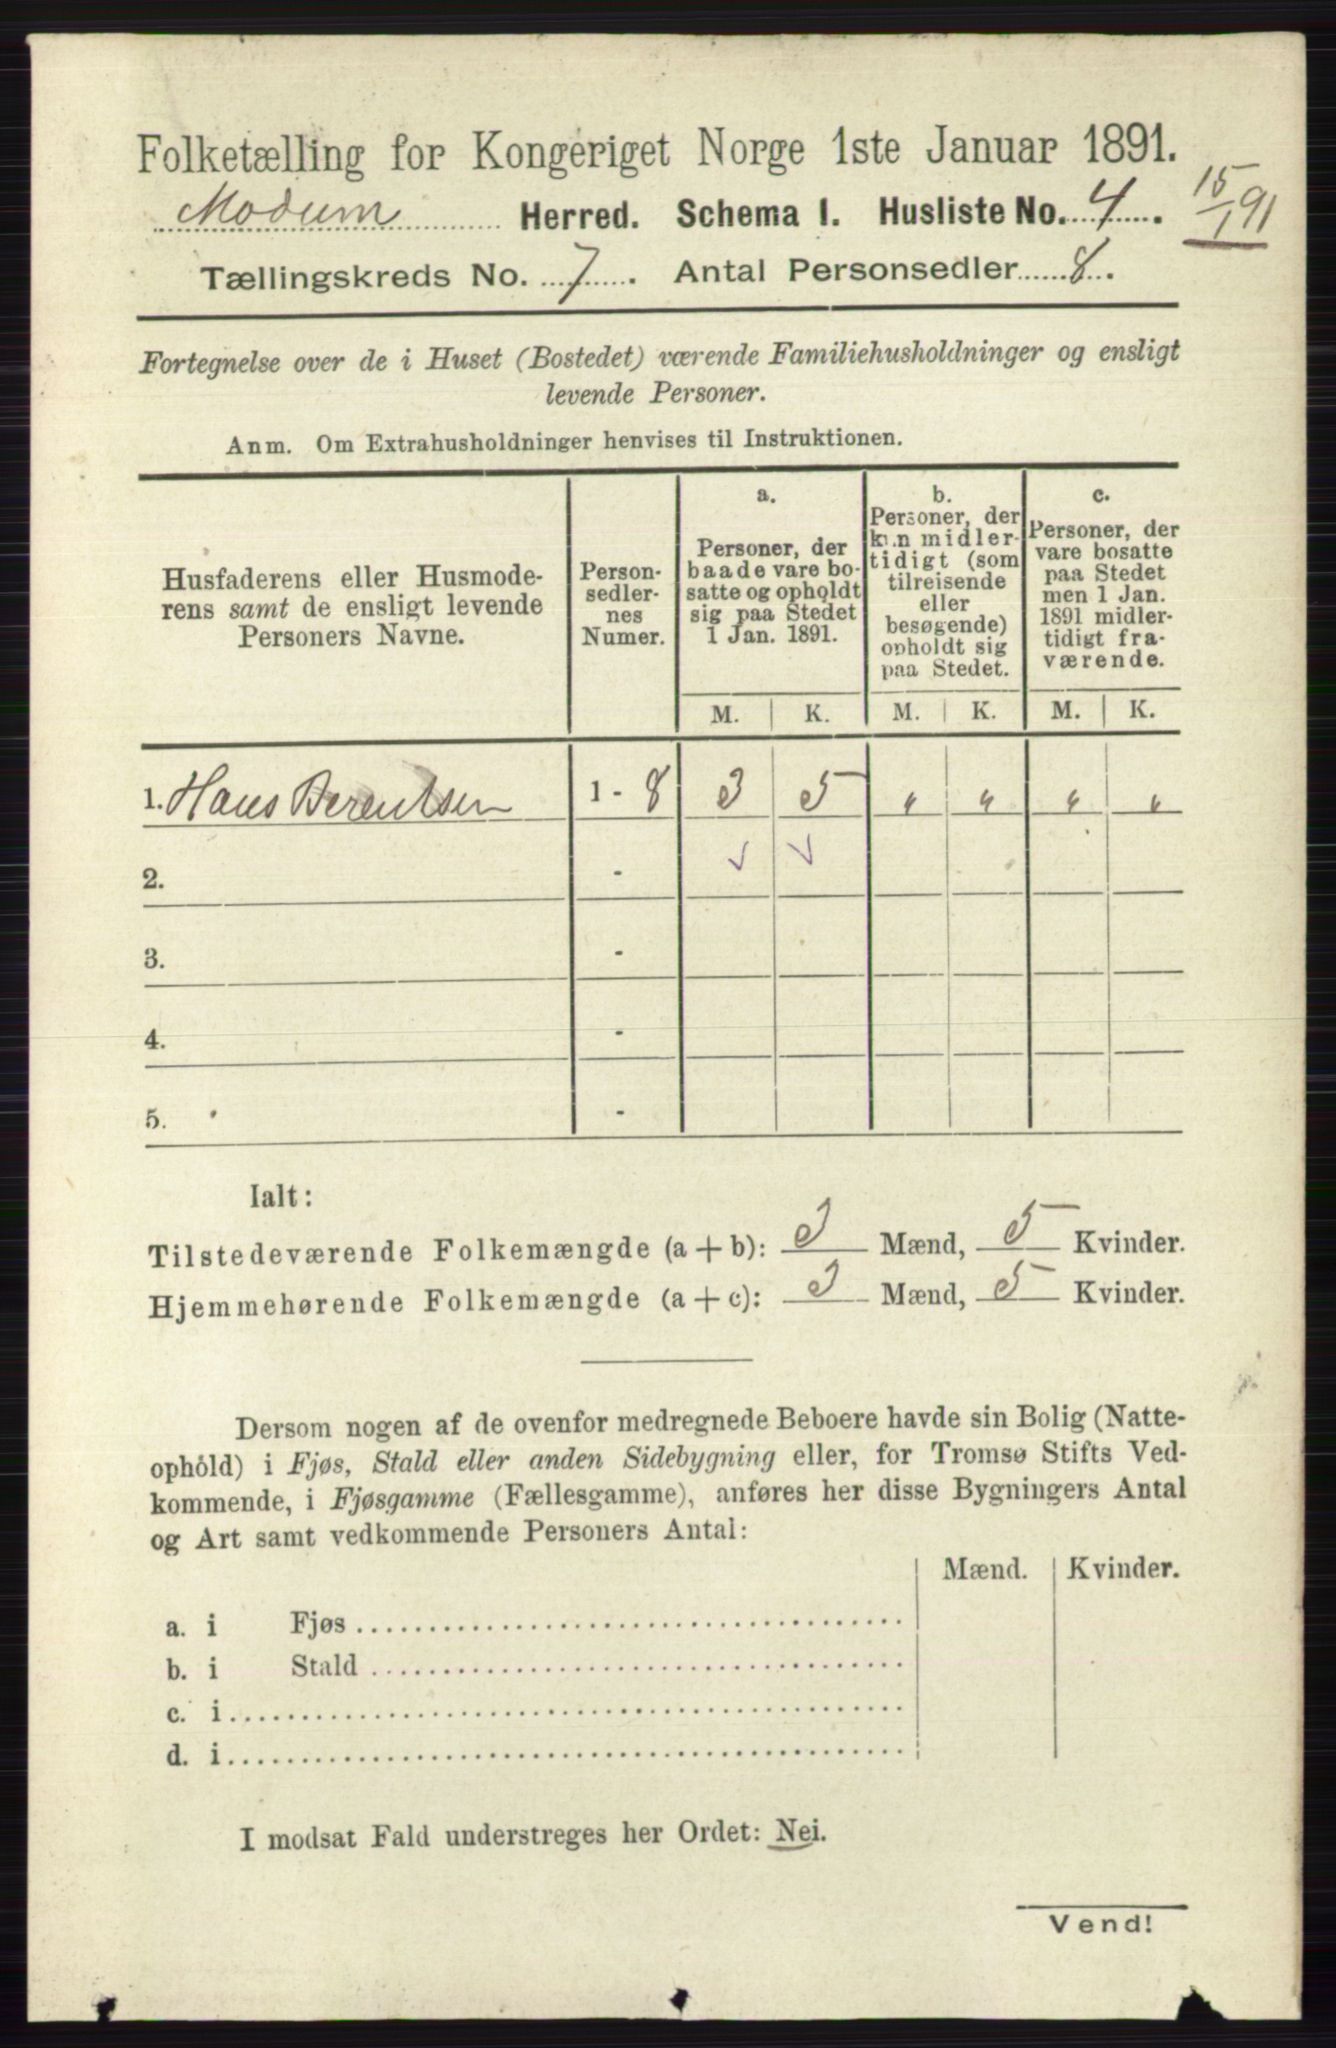 Folketælling for Kongeriget Norge 1ste Januar 1891.
Modum Herred. Schema I. Husliste No. 4. 15/1 91
Tællingskreds No. 7. Antal Personsedler 8.
Fortegnelse over de i Huset (Bostedet) værende Familiehusholdninger og ensligt
levende Personer.
Anm. Om Extrahusholdninger henvises til Instruktionen.
Husfaderens eller Husmode-
rens samt de ensligt levende
Personers Navne.
Person-
sedler-
nes
Numer.
a.
Personer, der
baade vare bo-
satte og opholdt
sig paa Stedet
1 Jan. 1891.
b.
Personer, der
kun midler-
tidigt (som
tilreisende
eller
besøgende)
opholdt sig
paa Stedet.
c.
Personer, der
vare bosatte
paa Stedet
men 1 Jan.
1891 midler-
tidigt fra-
værende.
M. K. M. K. M. K.
1. Hans Berentsen 1 - 8 3 5 " " " "
2. - ✓ ✓
3. -
4. -
5. -
Ialt:
Tilstedeværende Folkemængde (a + b): 3 Mænd, 5 Kvinder.
Hjemmehørende Folkemængde (a + c): 3 Mænd, 5 Kvinder.
Dersom nogen af de ovenfor medregnede Beboere havde sin Bolig (Natte-
ophold) i Fjøs, Stald eller anden Sidebygning eller, for Tromsø Stifts Ved-
kommende, i Fjøsgamme (Fællesgamme), anføres her disse Bygningers Antal
og Art samt vedkommende Personers Antal:
Mænd. Kvinder.
a. i Fjøs
b. i Stald
c. i
d. i
I modsat Fald understreges her Ordet: Nei.
Vend!